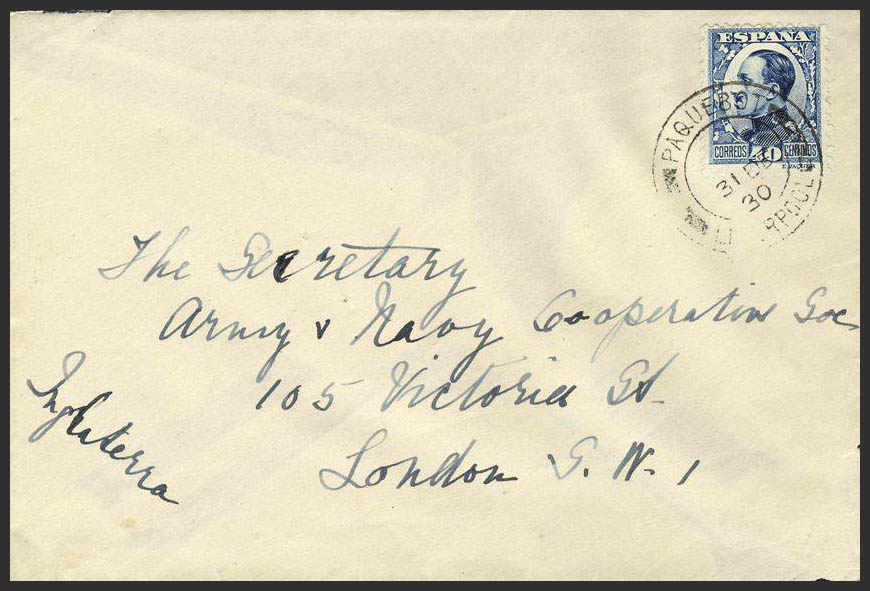 ESPAÑA
CORREOS 40 CENTIMOS
PAQUEBOT
31 DE
30
The Secretary
Army & Navy Cooperative Soc
105 Victoria St.
London S. W. 1
Inglaterra